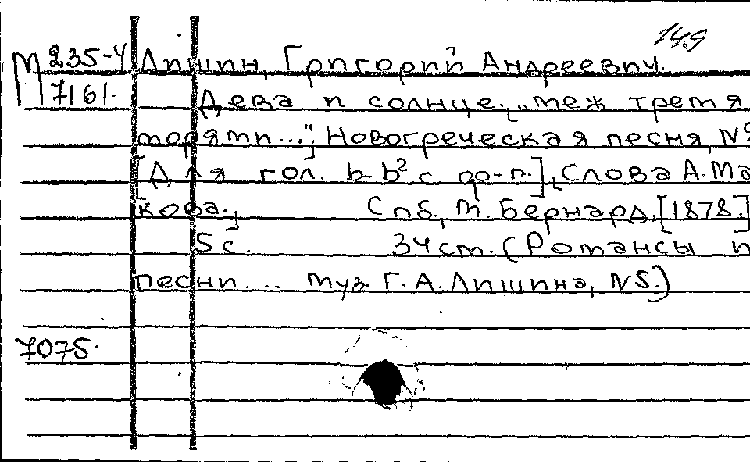 149
М 235-4 Лишин, Григорий Андреевич.
7161. Дева и солнце. „Меж тремя
морями..." Новогреческая песня, №
[Для гол. h-h² с ф-п.], Слова А. Ма
кова. Спб, М. Бернард, [1878.]
5 с. 34 см. (Романсы и
песни... муз. Г. А. Лишина, №5.)
7075.